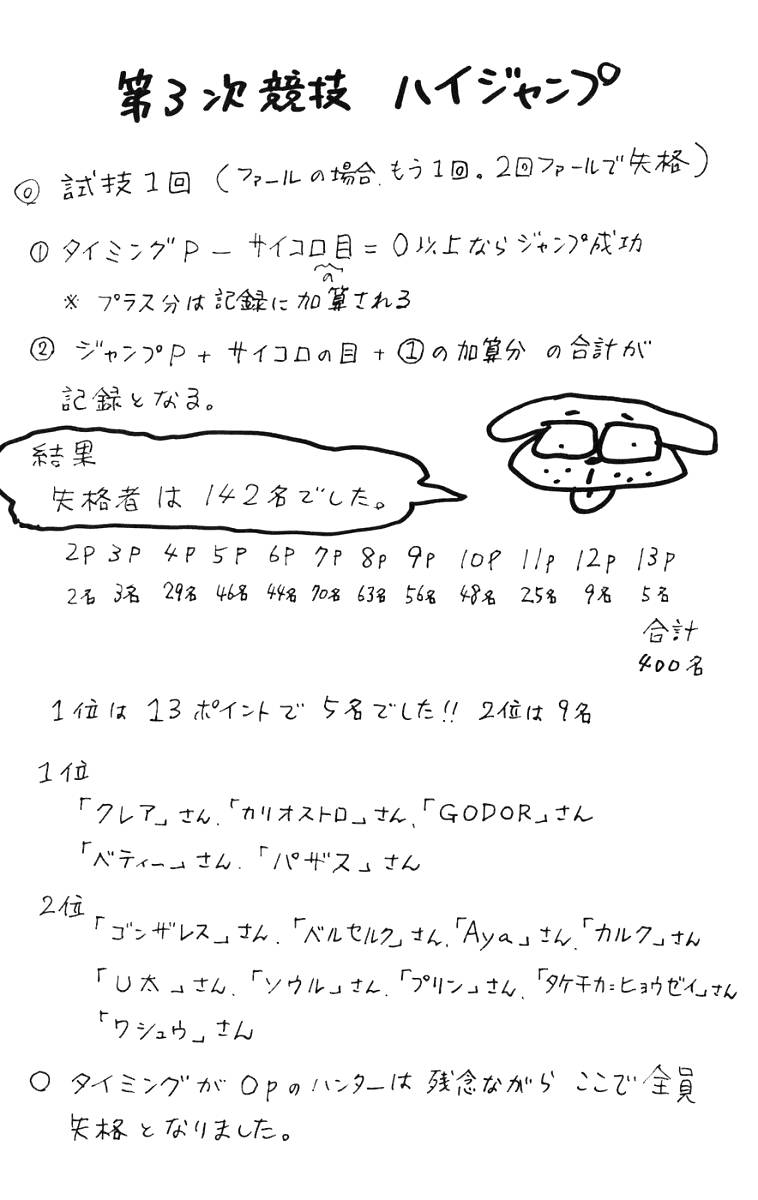 第3次競技 ハイジャンプ
◎ 試技1回 (ファールの場合、もう1回。2回ファールで失格)
① タイミングP − サイコロ目 = 0以上ならジャンプ成功
の
※ プラス分は記録に加算される
② ジャンプP + サイコロの目 + ①の加算分 の合計が
記録となる。
結果
失格者は 142名でした。
2P 3P 4P 5P 6P 7P 8P 9P 10P 11P 12P 13P
2名 3名 29名 46名 44名 70名 63名 56名 48名 25名 9名 5名
合計
400名
1位は 13ポイントで 5名でした!! 2位は 9名
1位
「クレア」さん、「カリオストロ」さん、「GODOR」さん
「ベティー」さん、「パザス」さん
2位
「ゴンザレス」さん、「ベルセルク」さん、「Aya」さん、「カルク」さん
「U太」さん、「ソウル」さん、「プリン」さん、「タケチカ=ヒョウゼイ」さん
「ワシュウ」さん
○ タイミングが 0pのハンターは 残念ながら ここで全員
失格となりました。